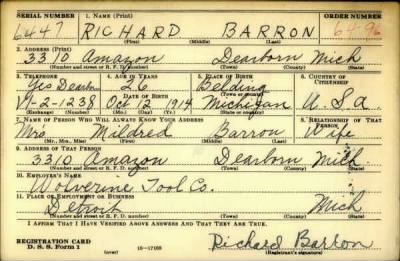 SERIAL NUMBER 1. NAME (Print) ORDER NUMBER
6447 RICHARD BARRON 6496
(First) (Middle) (Last)
2. ADDRESS (Print)
3310 Amazon Dearborn Mich
(Number and street or R. F. D. number) (Town) (County) (State)
3. TELEPHONE 4. AGE IN YEARS 5. PLACE OF BIRTH 6. COUNTRY OF CITIZENSHIP
Yes Dearborn 26 Belding
DATE OF BIRTH (Town or county)
V-2-1238 Oct 12 1914 Michigan U.S.A
7. NAME OF PERSON WHO WILL ALWAYS KNOW YOUR ADDRESS 8. RELATIONSHIP OF THAT PERSON
Mrs Mildred Barron Wife
(Mr., Mrs., Miss) (First) (Middle) (Last)
9. ADDRESS OF THAT PERSON
3310 Amazon Dearborn Mich.
(Number and street or R. F. D. number) (Town) (County) (State)
10. EMPLOYER'S NAME
Wolverine Tool Co.
11. PLACE OF EMPLOYMENT OR BUSINESS
Detroit Mich
(Number and street or R. F. D. number) (Town) (County) (State)
I AFFIRM THAT I HAVE VERIFIED ABOVE ANSWERS AND THAT THEY ARE TRUE.
REGISTRATION CARD
D. S. S. Form 1 (over) 16-17105 Richard Barron
(Registrant's signature)